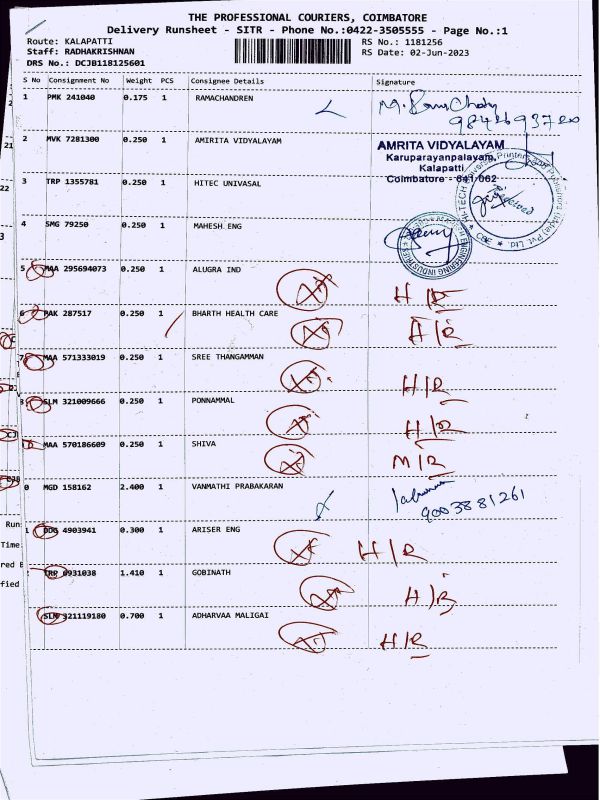 THE PROFESSIONAL COURIERS, COIMBATORE
Delivery Runsheet - SITR - Phone No.:0422-3505555 - Page No.:1
Route: KALAPATTI
RS No.: 1181256
Staff: RADHAKRISHNAN
RS Date: 02-Jun-2023
DRS No.: DCJB118125601
S No Consignment No Weight PCS Consignee Details Signature
1 PMK 241040 0.175 1 RAMACHANDREN
2 MVK 7281300 0.250 1 AMIRITA VIDYALAYAM
AMRITA VIDYALAYAM
Karuparayanpalayam,
Kalapatti
Coimbatore - 641 062
3 TRP 1355781 0.250 1 HITEC UNIVASAL
4 SMG 79250 0.250 1 MAHESH ENG
5 MAA 295694073 0.250 1 ALUGRA IND H/R
6 PAK 287517 0.250 1 BHARTH HEALTH CARE H/R
7 MAA 571333019 0.250 1 SREE THANGAMMAN H/R
8 SLM 321009666 0.250 1 PONNAMMAL H/R
MAA 570186609 0.250 1 SHIVA M/R
0 MGD 158162 2.400 1 VANMATHI PRABAKARAN
9003881261
1 DDG 4903941 0.300 1 ARISER ENG H/R
TRP 6931038 1.410 1 GOBINATH H/R
SLM 321119180 0.700 1 ADHARVAA MALIGAI H/R